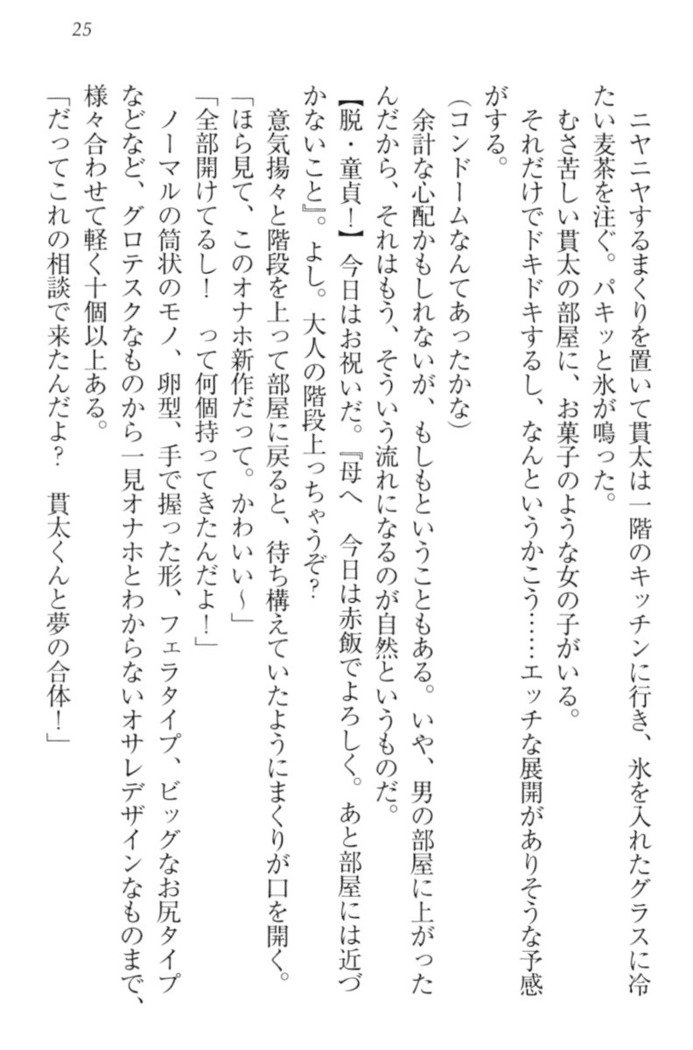 25
ニヤニヤするまくりを置いて貫太は一階のキッチンに行き、氷を入れたグラスに冷
たい麦茶を注ぐ。パキッと氷が鳴った。
むさ苦しい貫太の部屋に、お菓子のような女の子がいる。
それだけでドキドキするし、なんというかこう……エッチな展開がありそうな予感
がする。
（コンドームなんてあったかな）
余計な心配かもしれないが、もしもということもある。いや、男の部屋に上がった
んだから、それはもう、そういう流れになるのが自然というものだ。
【脱・童貞！】今日はお祝いだ。『母へ　今日は赤飯でよろしく。あと部屋には近づ
かないこと』。よし。大人の階段上っちゃうぞ？
意気揚々と階段を上って部屋に戻ると、待ち構えていたようにまくりが口を開く。
「ほら見て、このオナホ新作だって。かわいい～」
「全部開けてるし！　って何個持ってきたんだよ！」
ノーマルの筒状のモノ、卵型、手で握った形、フェラタイプ、ビッグなお尻タイプ
などなど、グロテスクなものから一見オナホとわからないオサレデザインなものまで、
様々合わせて軽く十個以上ある。
「だってこれの相談で来たんだよ？　貫太くんと夢の合体！」